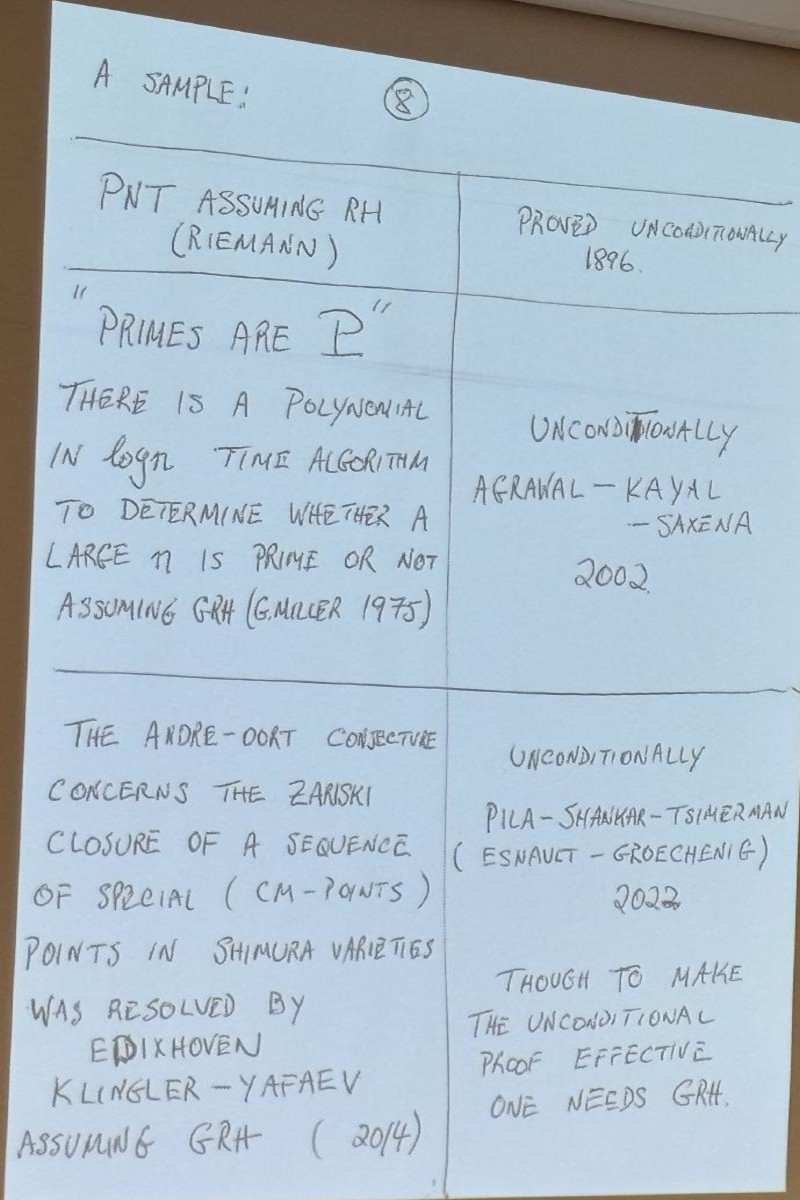 A SAMPLE:
8
PNT ASSUMING RH
(RIEMANN)
PROVED UNCONDITIONALLY
1896.
"PRIMES ARE P"
THERE IS A POLYNOMIAL
IN logn TIME ALGORITHM
TO DETERMINE WHETHER A
LARGE n IS PRIME OR NOT
ASSUMING GRH (G.MILLER 1975)
UNCONDITIONALLY
AGRAWAL - KAYAL
- SAXENA
2002.
THE ANDRE-OORT CONJECTURE
CONCERNS THE ZARISKI
CLOSURE OF A SEQUENCE
OF SPECIAL (CM-POINTS)
POINTS IN SHIMURA VARIETIES
WAS RESOLVED BY
EDIXHOVEN
KLINGLER - YAFAEV
ASSUMING GRH (2014)
UNCONDITIONALLY
PILA-SHANKAR-TSIMERMAN
(ESNAULT - GROECHENIG)
2022
THOUGH TO MAKE
THE UNCONDITIONAL
PROOF EFFECTIVE
ONE NEEDS GRH.